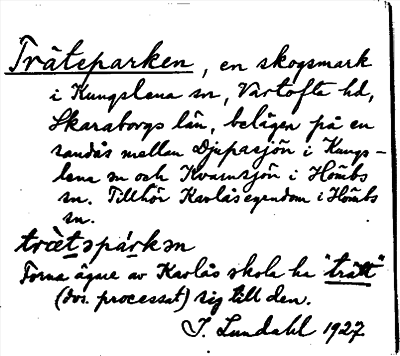 Träteparken, en skogsmark
i Kungslena sn, Vartofta hd,
Skaraborgs län, belägen på en
sandås mellan Djupasjön i Kungs-
lena sn och Kvarnsjön i Hömbs
sn. Tillhör Karlåsegendom i Hömbs
sn.
trætspárkən
Forna ägare av Karlås skola ha "trätt"
(dvs. processat) sig till den.
I. Lundahl 1927